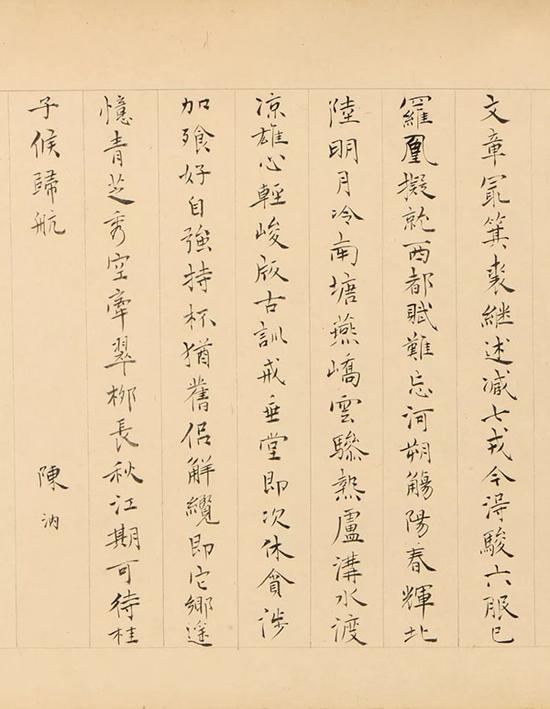 文章冣箕裘継述減七戎令淂駿六服已
羅凰擬就西都賦難忘河朔觴陽春輝北
陸明月冷南塘燕嶠雲驂熱盧溝水渡
凉雄心輕峻阪古訓戒垂堂即次休貪涉
加飱好自強持杯猶舊侣觧纜即它鄉遥
憶青芝秀空牽翠柳長秋江期可待桂
子候歸航
陳汭